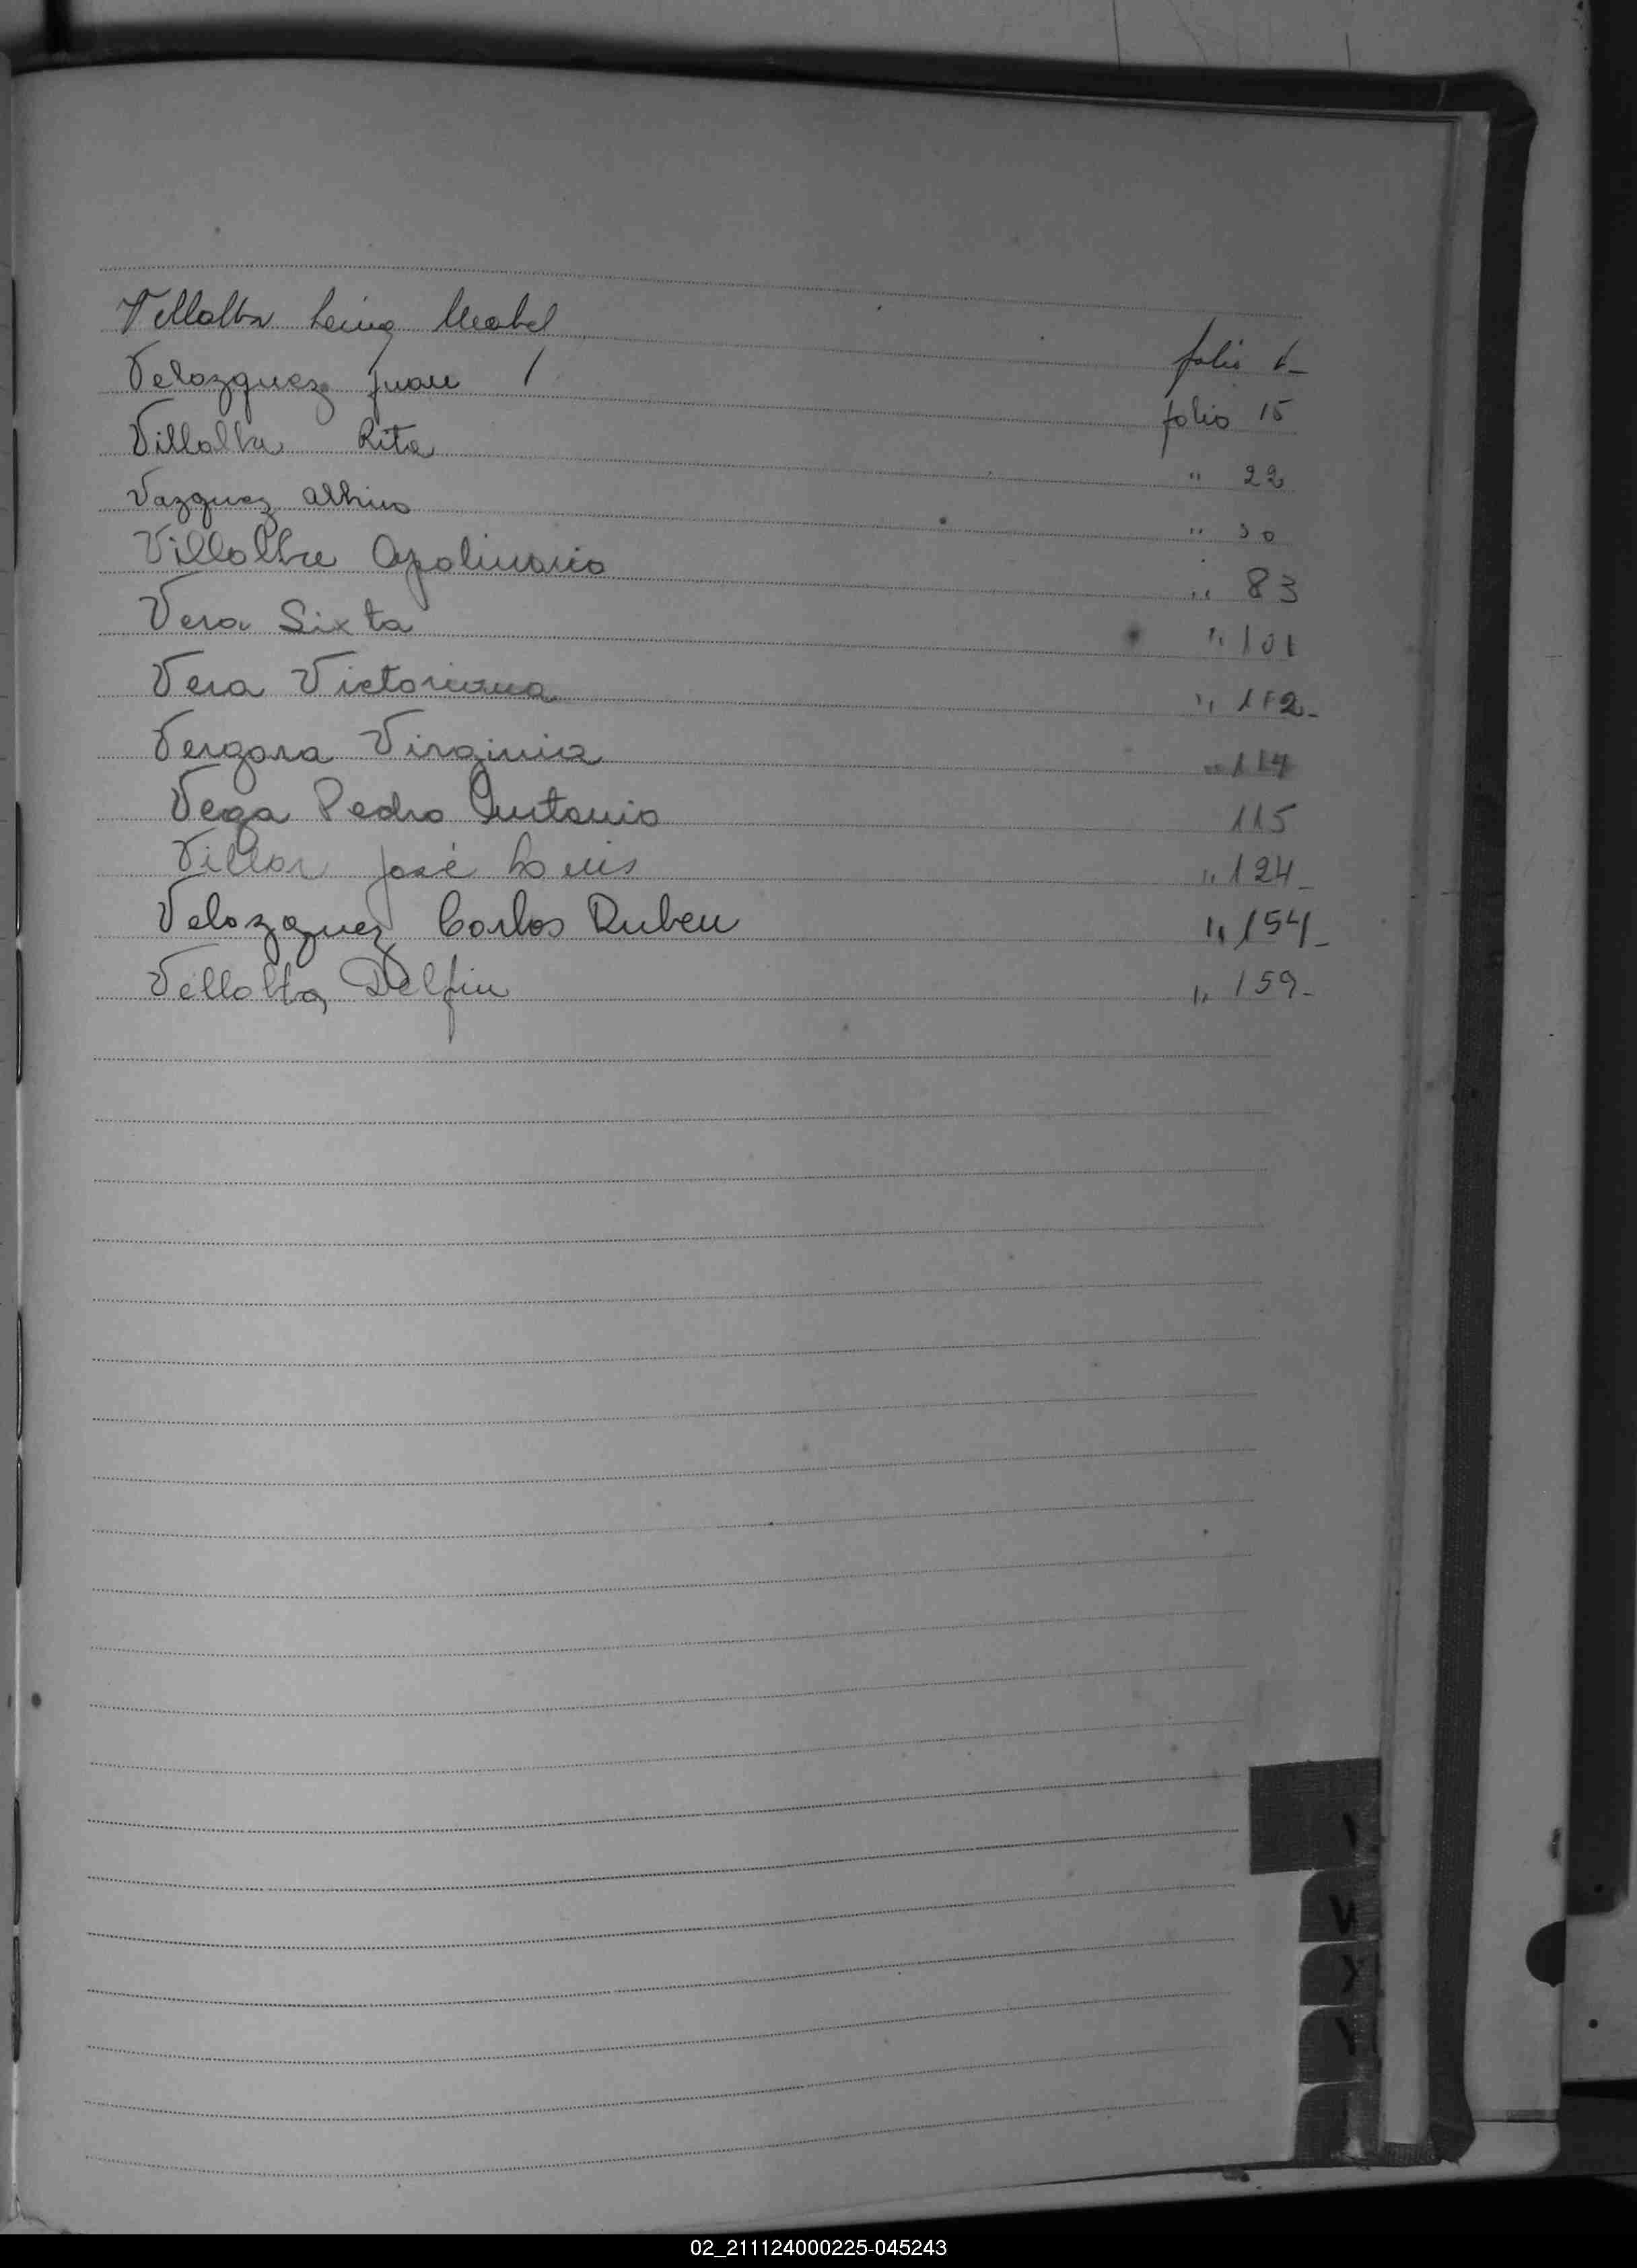 Villalba Mabel folio
Velazquez Juan folio 15
Villalba Rita " 22
Vazquez Albino " 30
Villalba Apolinario " 83
Vera Sixta " 101
Vera Victoriana " 112-
Vergara Virginia " 114
Vega Pedro Antonio 115
Villar José Luis " 124-
Velazquez Carlos Ruben " 154-
Villalba, Delfin " 159-
V
X
Y
02_211124000225-045243